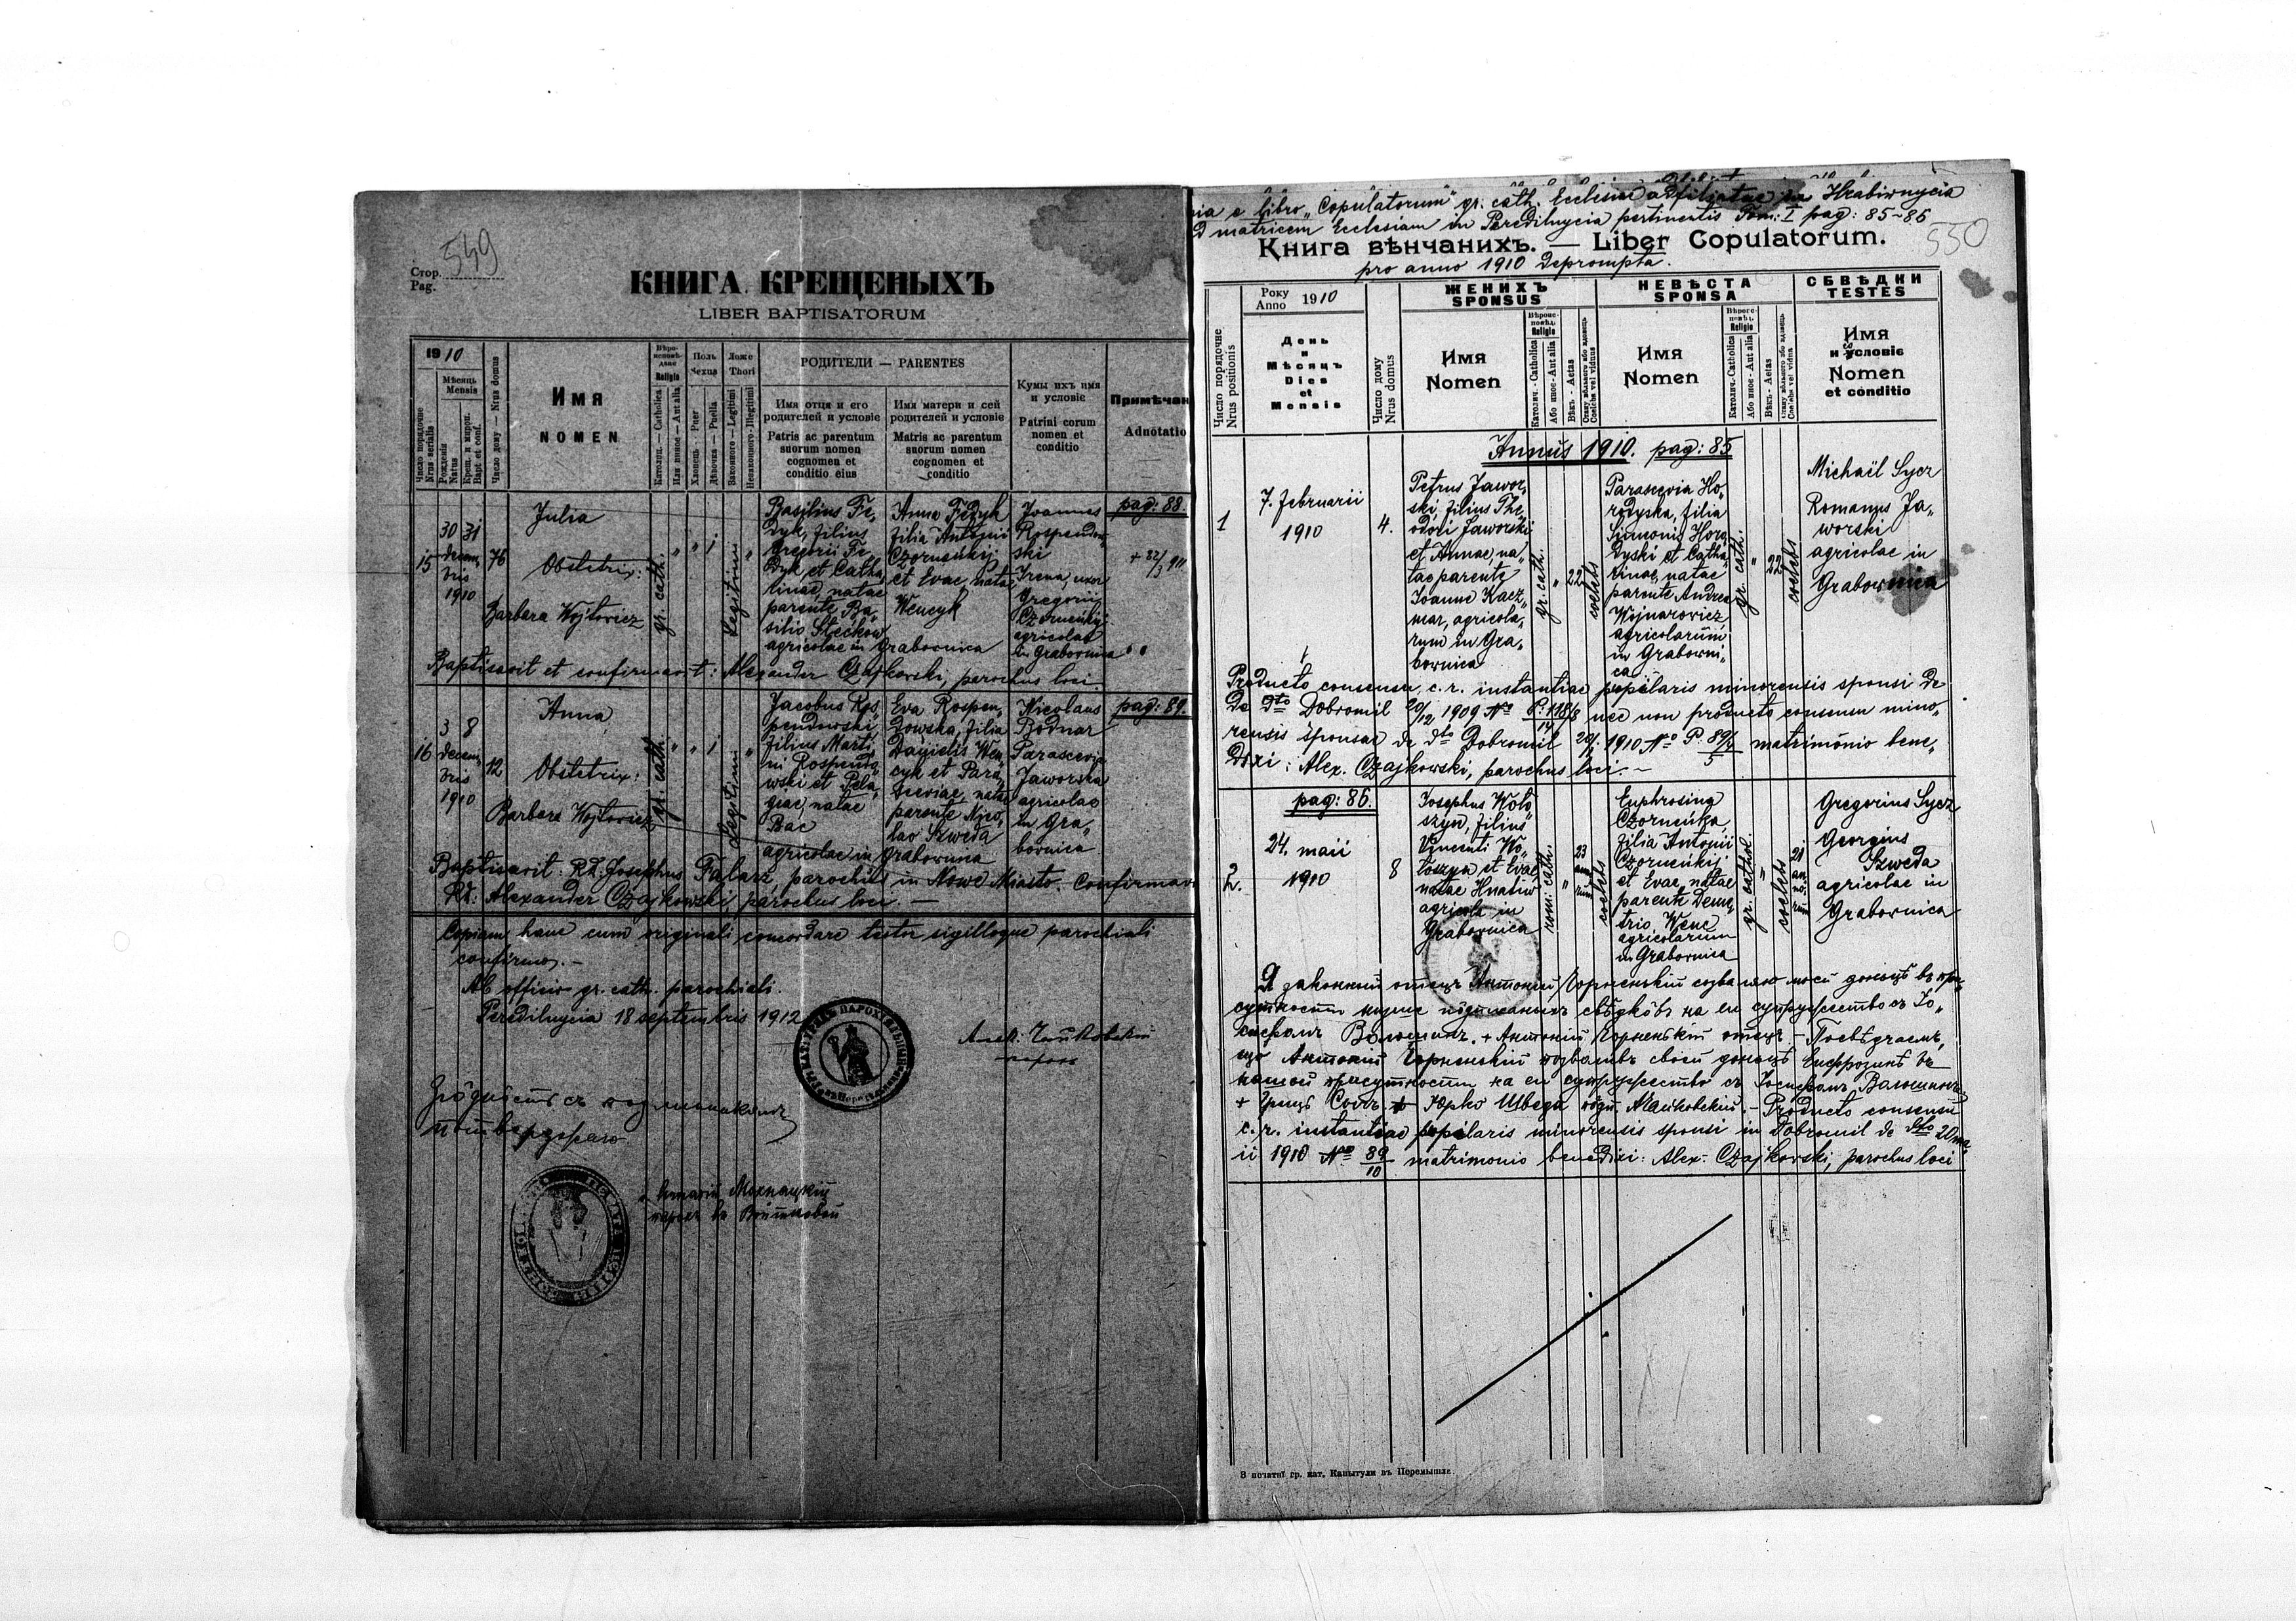 549
Стор.
Pag.
КНИГА КРЕЩЕНЫХЪ
LIBER BAPTISATORUM
1910
Мѣсяць
Mensis
Число порядочне
Nrus serialis
Рожденія
Natus
Крещ. и мироп.
Bapt et conf.
Число дому — Nrus domus
Имя
NOMEN
Вѣро-
исповѣ-
даніе
Religio
Католиц. — Catholica
Или инное — Aut alia
Поль
Sexus
Хлопець - Puer
Дѣвочка — Puella
Ложе
Thori
Законного — Legitimi
Незаконного - Illegitimi
РОДИТЕЛИ — PARENTES
Имя отця и его
родителей и условіе
Patris ac parentum
suorum nomen
cognomen et
conditio eius
Имя матери и сей
родителей и условіе
Matris ac parentum
suorum nomen
cognomen et
conditio
Кумы ихъ имя
и условіе
Patrini eorum
nomen et
conditio
Примѣчан
Adnotatio
15
30 31
decem,
bris
1910
76
Julia
Obstetrix:
Barbara Wojtowicz
gr. cath.
" " 1 "
Legitimi
Basilius Fe,
dyk, filius
Gregorii Fe,
dyk et Catha
rinae, natae
parente Ba,
silio Steckow
agricolae in Grabownica
Anna Fedyk
filia Antonii
Czorneńkij
et Evae, natae
Wencyk
Joannes
Rospendow
ski
Irena, uxor
Gregorii
Czorneńkij
agricolae
in Grabownica
pag: 88.
+ 22/3 911
Baptisavit et confirmavit: Alexander Czajkowski, parochus loci.
16
3 8
decem,
bris
1910
12
Anna
Obstetrix:
Barbara Wojtowicz
gr. cath.
" " 1 "
Legitimi
Jacobus Ros,
pendowski
filius Marti,
ni Rospendo,
wski et Pela,
giae, natae
Bac
agricolae in Grabownica
Eva Rospen,
dowska, filia
Danielis Wen,
cyk et Para,
sceviae, natae
parente Nico,
lao Szweda
Nicolaus
Bodnar
Parascevia
Jaworska
agricolae
in Gra,
bownica
pag: 89.
Baptisavit: Rd: Josephus Falasz, parochus in Nowe Miasto. Confirmavi
Rd: Alexander Czajkowski, parochus loci. —
Copiam hanc cum originali concordare testor sigilloque parochiali
confirmo. —
Ab officio gr. cath. parochiali.
Peredilnycia 18 septembris 1912
Алек. Чайковскій
парохъ
потверджаю.
парох въ Войтковой
ia e libro "Copulatorum" gr. cath. Ecclesiae adfiliatae in Hrabiwnycia
d matricem Ecclesiam in Peredilnycia pertinentis Tom: I pag: 85-86
550
Книга вѣнчанихъ. — Liber Copulatorum.
pro anno 1910 deprompta.
Число порядочне
Nrus positionis
Року
Anno 1910
День
и
Мѣсяцъ
Dies
et
Mensis
Число дому
Nrus domus
ЖЕНИХЪ
SPONSUS
Имя
Nomen
Вѣроис-
повѣд.
Religio
Католич. - Catholica
Або иное - Aut alia
Вѣкъ - Aetas
Стану вѣльного або вдовець
Coelebs vel viduus
НЕВѢСТА
SPONSA
Имя
Nomen
Вѣроис-
повѣд.
Religio
Католич. - Catholica
Або иное - Aut alia
Вѣкъ - Aetas
Coelebs vel vidua
СБВѢДКИ
TESTES
Имя
и условіе
Nomen
et conditio
Annus 1910. pag: 85
1
7. februarii
1910
4.
Petrus Jawor,
ski, filius The,
odori Jaworski
et Annae, na,
tae parente
Joanne Kacz,
mar, agricola,
rum in Gra,
bownica
gr. cath.
"
22
coelebs
Parascevia Ho,
rodyska, filia
Simonis Horo,
dyski et Catha,
rinae, natae
parente Andrea
Wojnarowicz,
agricolarum
in Grabowni,
ca
gr. cath.
"
22
coelebs
Michaël Sycz
Romanus Ja,
worski
agricolae in
Grabownica
Producto consensu c. r. instantiae pupilaris minorensis sponsi de
de dto Dobromil 20/12 1909 No P. 118/8 14 nec non producto consensu mino,
rensis sponsae de dto Dobromil 20/1 1910 No P. 89/9 5 matrimonio bene,
dixi: Alex. Czajkowski, parochus loci. —
pag: 86.
2.
24. maii
1910
8
Josephus Woło
szyn, filius
Vincenti Wo,
łoszyn et Evae
natae Hnatiw
agricola in
Grabownica
rom: cath.
"
23
anno
rum
coelebs
Euphrosina
Czorneńka,
filia Antonii
Czorneńkij
et Evae, natae
parente Deme,
trio Wenc
agricolarum
in Grabownica
gr. cathol.
"
coelebs
21
an,
no,
rum
Gregorius Sycz
Georgius
Szweda
agricolae in
Grabownica
Я законный отецъ Антоній Чорненькій созваляю моєй доньцѣ въ при,
сутности нижше пôдписаныхъ свѣдкôвъ на еи супружество съ Іо,
сифомъ Волошинъ. + Антоній Чорненькій отецъ — Посвѣдчаемъ,
що Антоній Чорненькій позваливъ своєй доньцѣ Евфрозинѣ въ
нашой присутности на еи супружество съ Іосифомъ Валошиномъ
+ Грицъ Сычъ + Юрко Шведа пôдп. АЧайковскій. — Producto consensu
c. r. instantiae pupilaris minorensis sponsi in Dobromil de dto 20 ma,
ii 1910 No 89/10 matrimonio benedixi: Alex. Czajkowski, parochus loci
З печатнѣ гр. кат. Капитули въ Перемышлѣ.